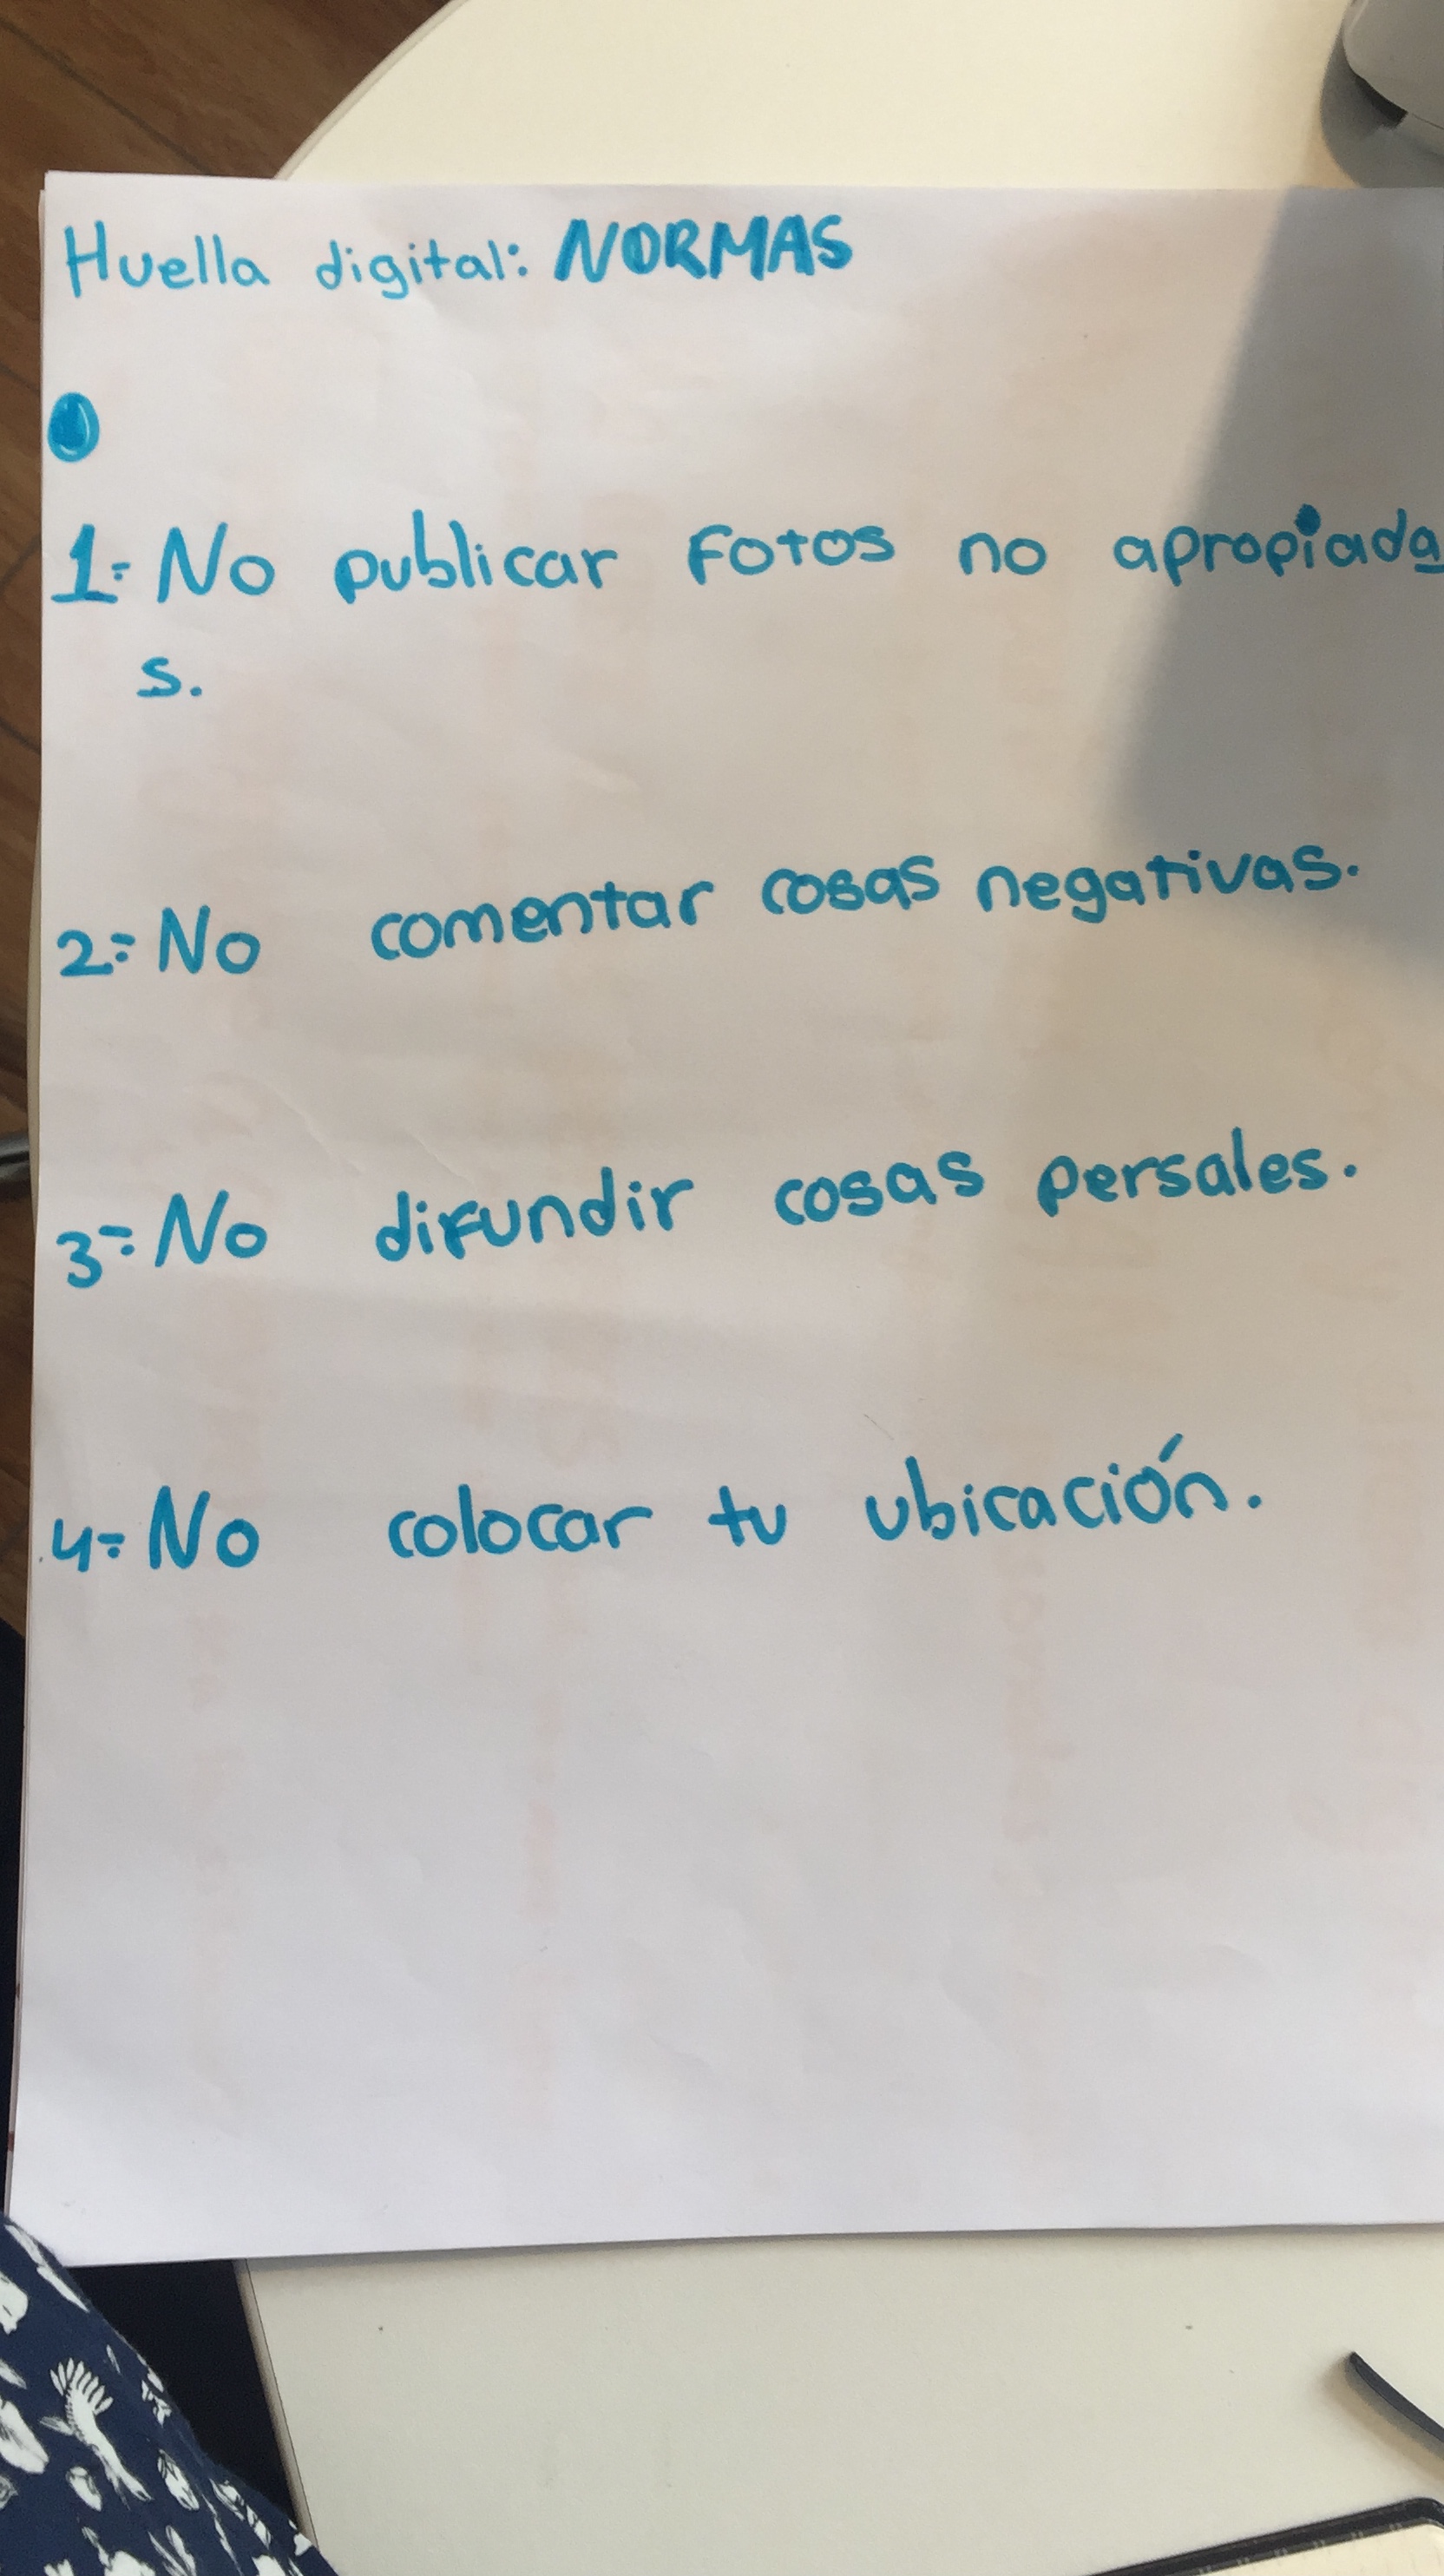 Huella digital: NORMAS
1.- No publicar fotos no apropiada
s.
2.- No comentar cosas negativas.
3.- No difundir cosas persales.
4.- No colocar tu ubicación.